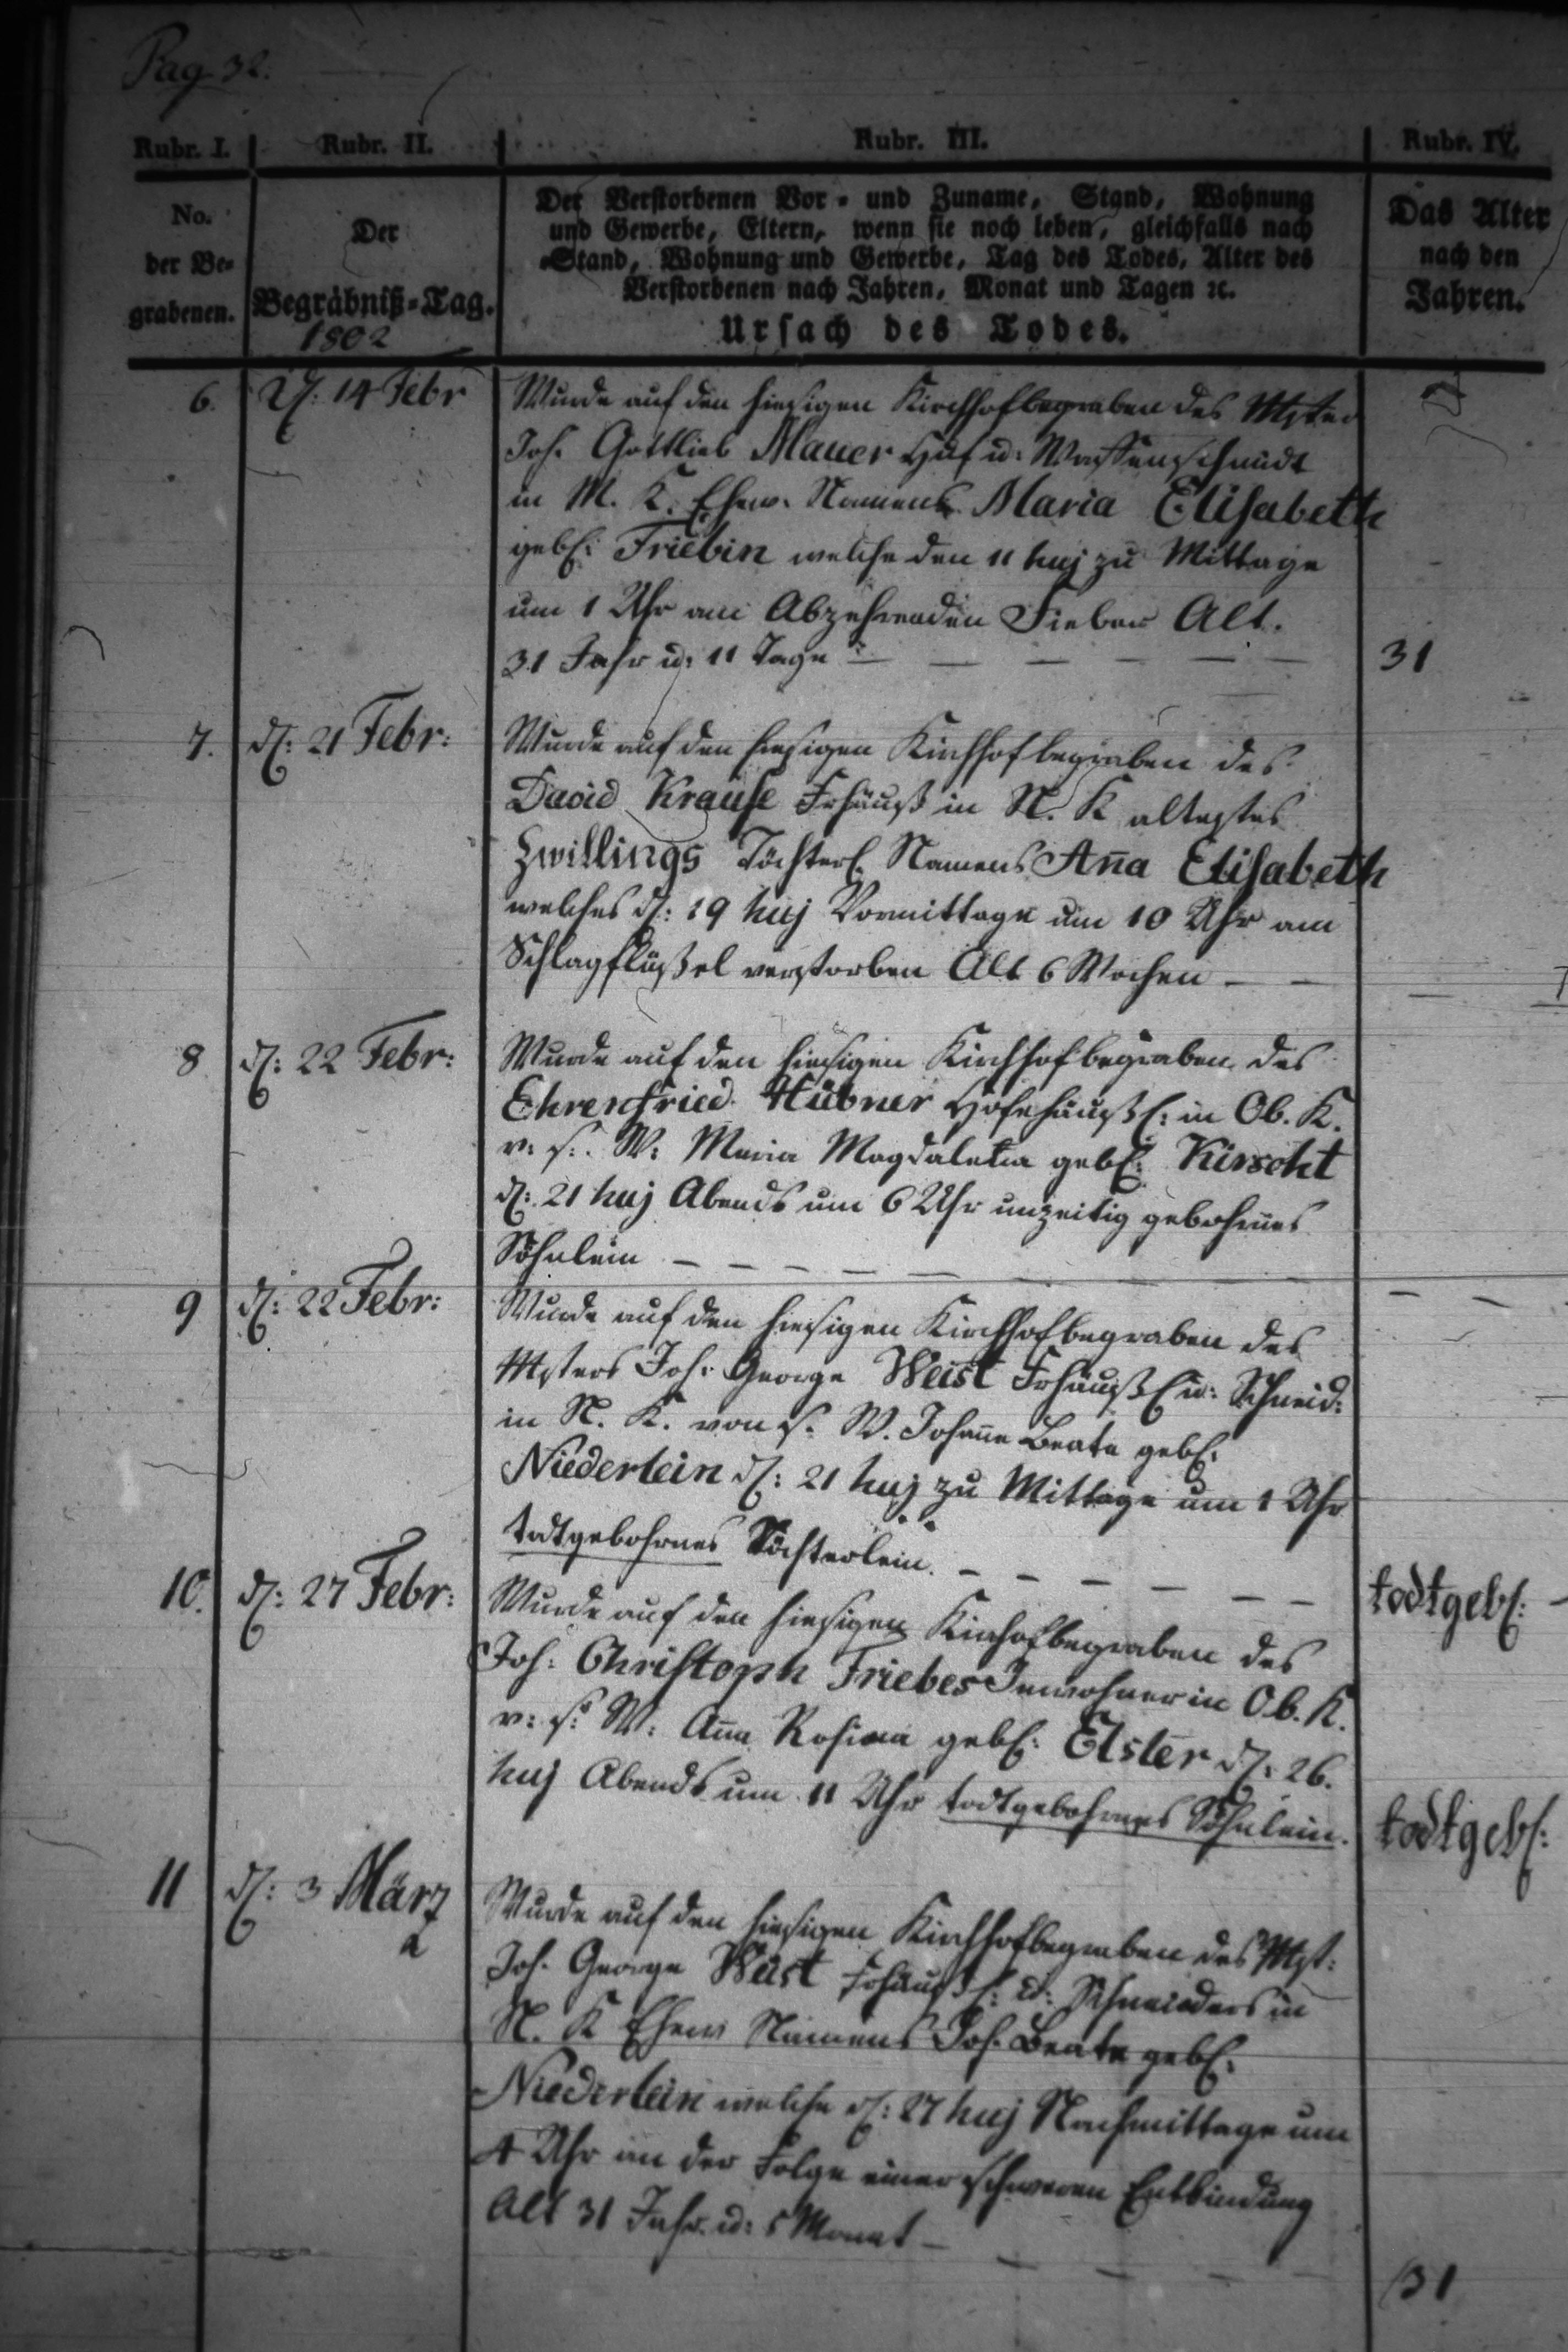 Pag 32.
Rubr. I. Rubr. II. Rubr. III. Rubr. IV.
No. der Be- grabenen.
Der Begräbniß-Tag. 1802
Der Verstorbenen Vor- und Zuname, Stand, Wohnung
und Gewerbe, Eltern, wenn sie noch leben, gleichfalls nach
Stand, Wohnung und Gewerbe, Tag des Todes, Alter des
Verstorbenen nach Jahren, Monat und Tagen ꝛc.
Ursach des Todes.
Das Alter nach den Jahren.
6. D: 14 Febr Wurde auf den hiesigen Kirchhof begraben des Mster
Joh. Gottlieb Mauer Huf u: Waffenschmidt
in M. K. Ehew. Namens Maria Elisabeth
geb: Friebin welche den 11 huj zu Mittage
um 1 Uhr am Abzehrenden Fieber Alt.
31 Jahr u: 11 Tage 31
7. d: 21 Febr: Wurde auf den hiesigen Kirchhof begraben des
David Krause Frhäusl in N. K ältestes
Zwillings Töchterl. Namens Ana Elisabeth
welches d: 19 huj Vormittage um 10 Uhr am
Schlagflüßel verstorben Alt 6 Wochen
8 d: 22 Febr: Wurde auf den hiesigen Kirchhof begraben des
Ehrenfried Hübner Hofehäusl: in Ob. K.
v: s: W: Maria Magdalena geb: Kirscht
d: 21 huj Abends um 6 Uhr unzeitig gebohrnes
Söhnlein
9 d: 22 Febr: Wurde auf den hiesigen Kirchhof begraben des
Msters Joh: George Weist Frhäusl u: Schneid:
in N. K. von s. W. Johane Beata geb:
Niederlein d: 21 huj zu Mittage um 1 Uhr
todtgebohrnes Töchterlein. todtgeb:
10. d: 27 Febr: Wurde auf den hiesigen Kirchof begraben des
Joh: Christoph Friebes Inwohner in Ob. K.
v: s: W: Ana Rosina geb: Elster d: 26.
huj Abends um 11 Uhr todtgebohrnes Söhnlein. todtgeb:
11 d: 3 März Wurde auf den hiesigen Kirchhof begraben des Mst:
Joh. George Weist Frhäusl: u: Schneiders in
N. K Ehew Namens Joh. Beate geb:
Niederlein welche d: 27 huj Nachmittage um
4 Uhr an der Folge einer schweren Entbindung
Alt 31 Jahr u: 5 Monat 31